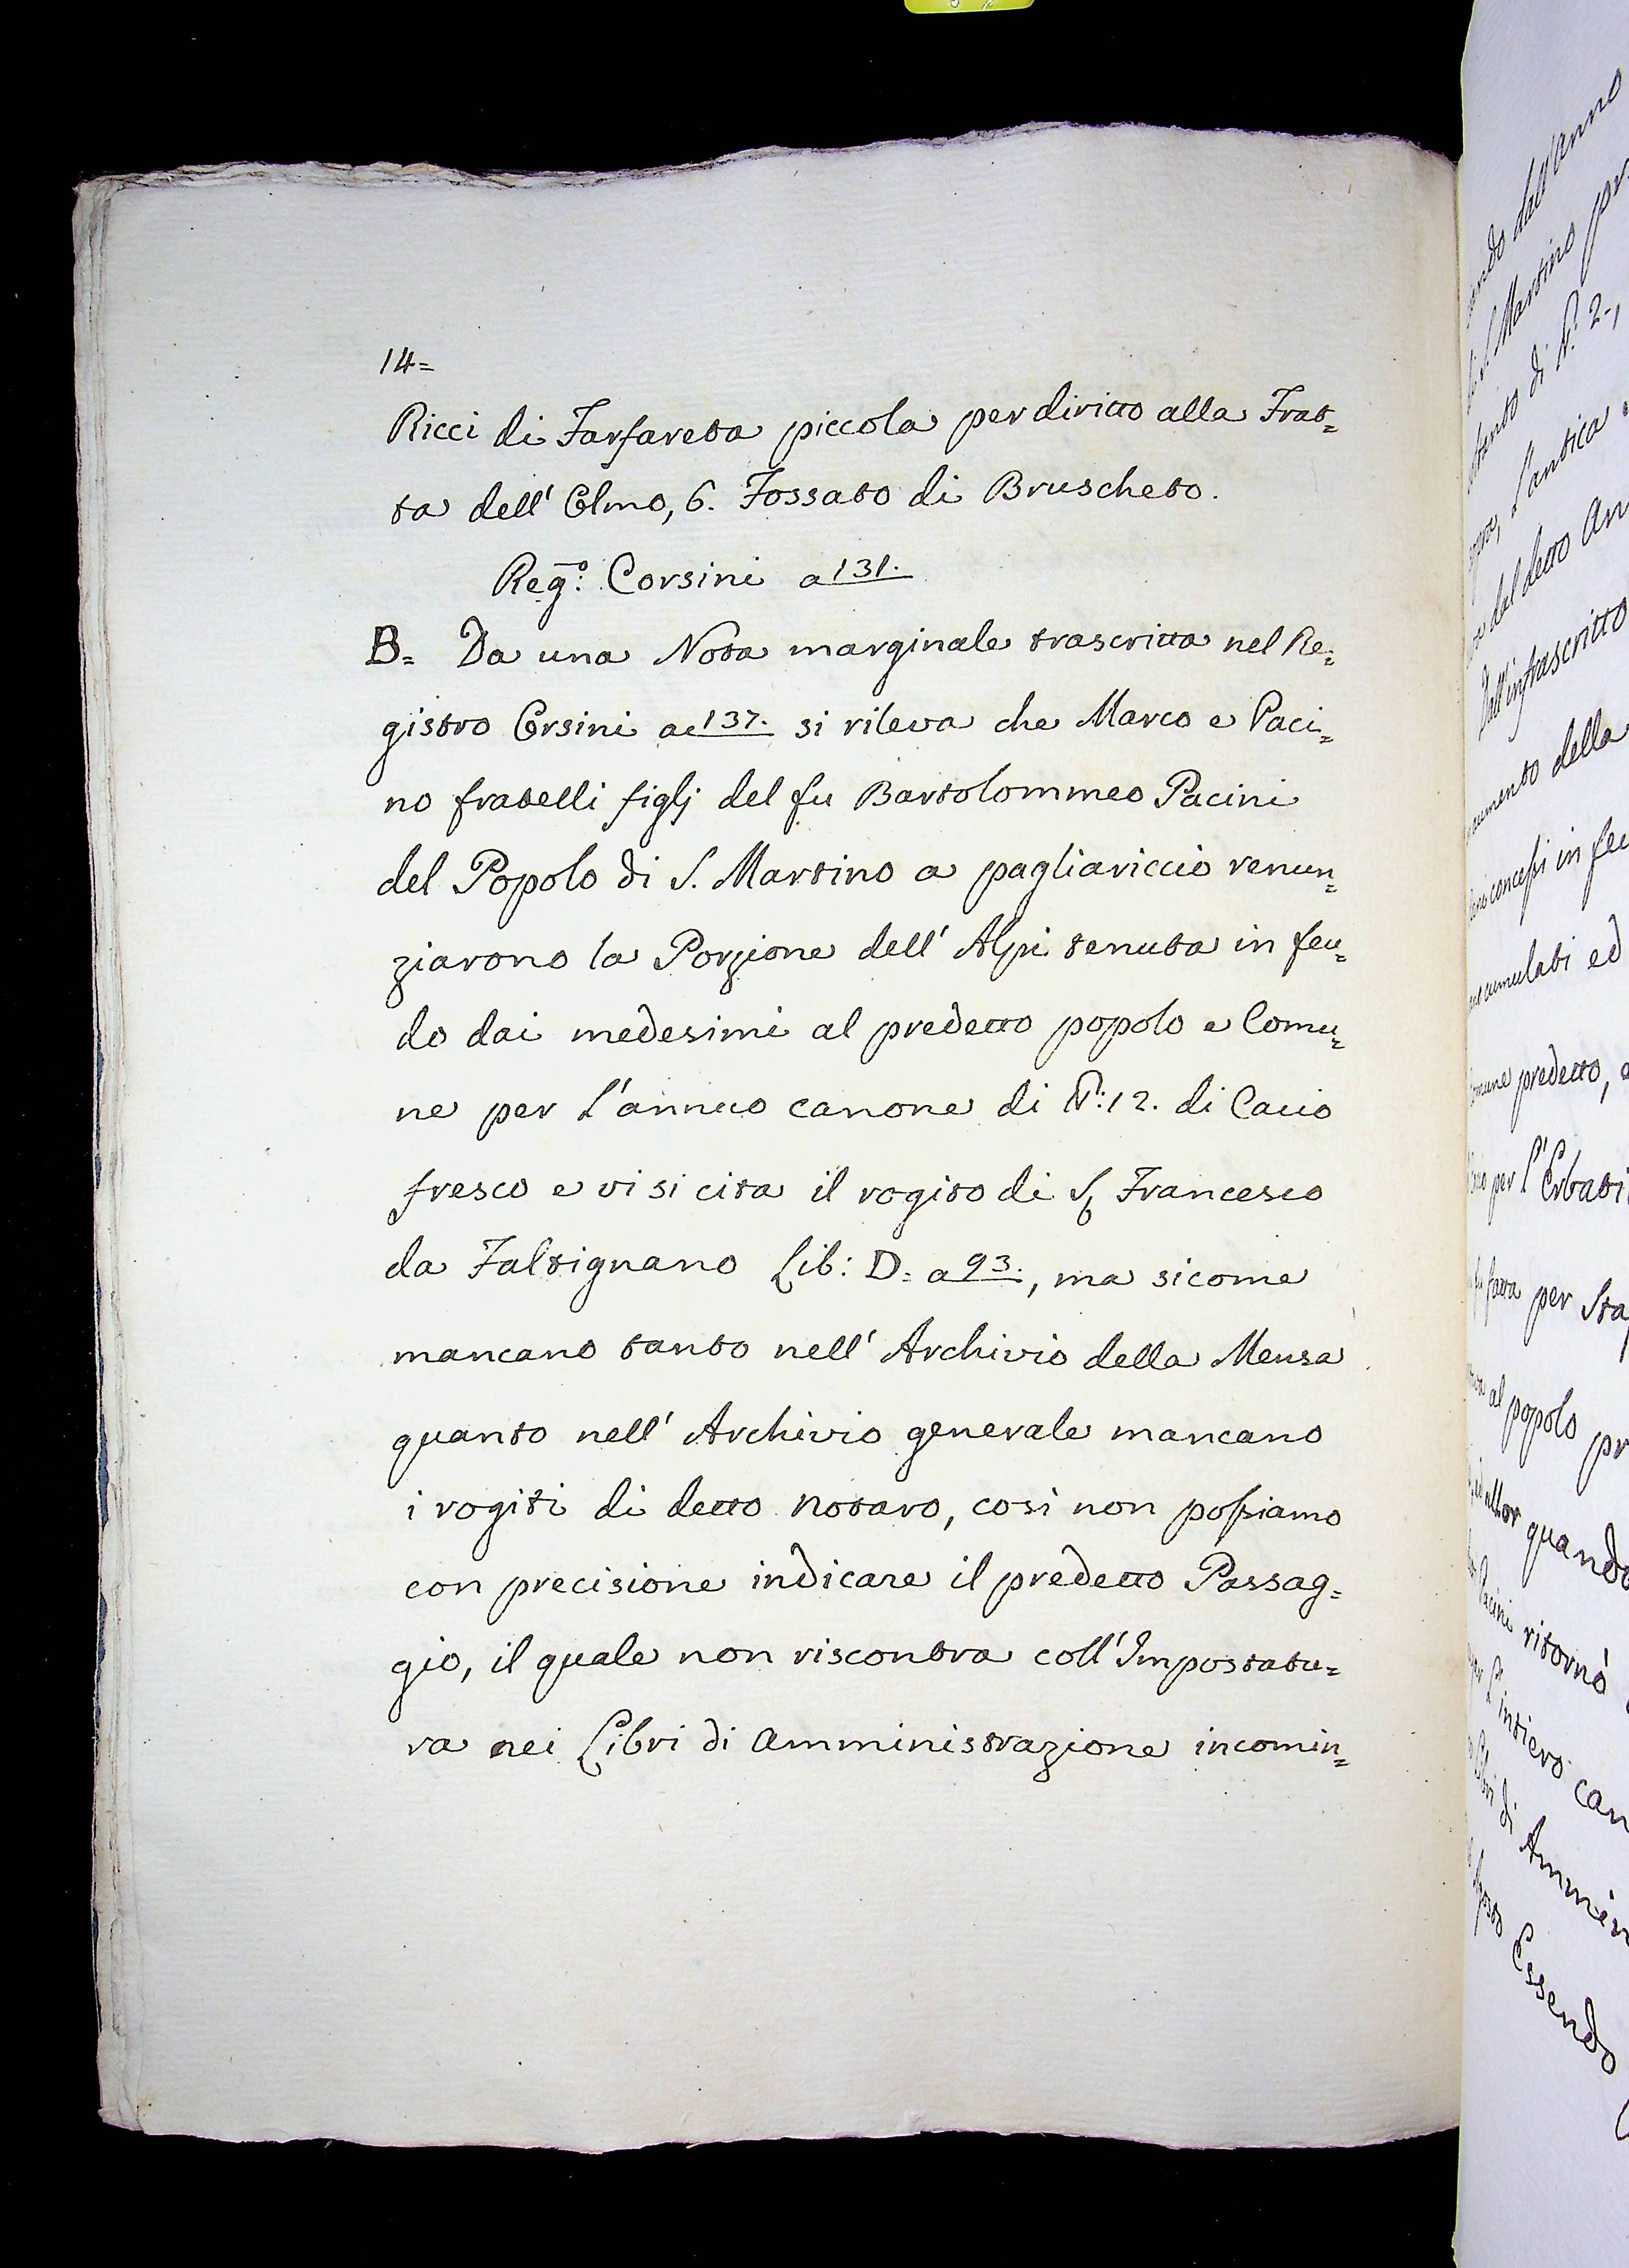 14=
Ricci di Farfareta piccola per diritto alla Frat=
ta dell' Olmo, 6. Fossato di Bruscheto.
Reg.º: Corsini a 131.
B= Da una Nota marginale trascritta nel Re=
gistro Corsini a 137. si rileva che Marco e Paci=
no fratelli figlj del fu Bartolommeo Pacini
del Popolo di S. Martino a pagliariccio renun=
ziarono la Porzione dell' Alpi tenuta in feu=
do dai medesimi al predetto popolo e Comu=
ne per l'annuo canone di 12. di Cacio
fresco e vi si cita il rogito di Francesco
da Faltignano Lib: D= a 93., ma sicome
mancano tanto nell' Archivio della Mensa
quanto nell' Archivio generale mancano
i rogiti di detto notaro, così non possiamo
con precisione indicare il predetto Passag=
gio, il quale non riscontra coll' Impostatu=
ra nei Libri di Amministrazione incomin=
dall'anno
S. Martino
di N.º 2,
L'antica
dal detto An
Dall'infrascritto
della
concessi in feu
ed
predetto,
per l'Erbati
per Sta
al popolo pr
allor quando
Pacini ritornò
intiero can
di Ammin
Essendo